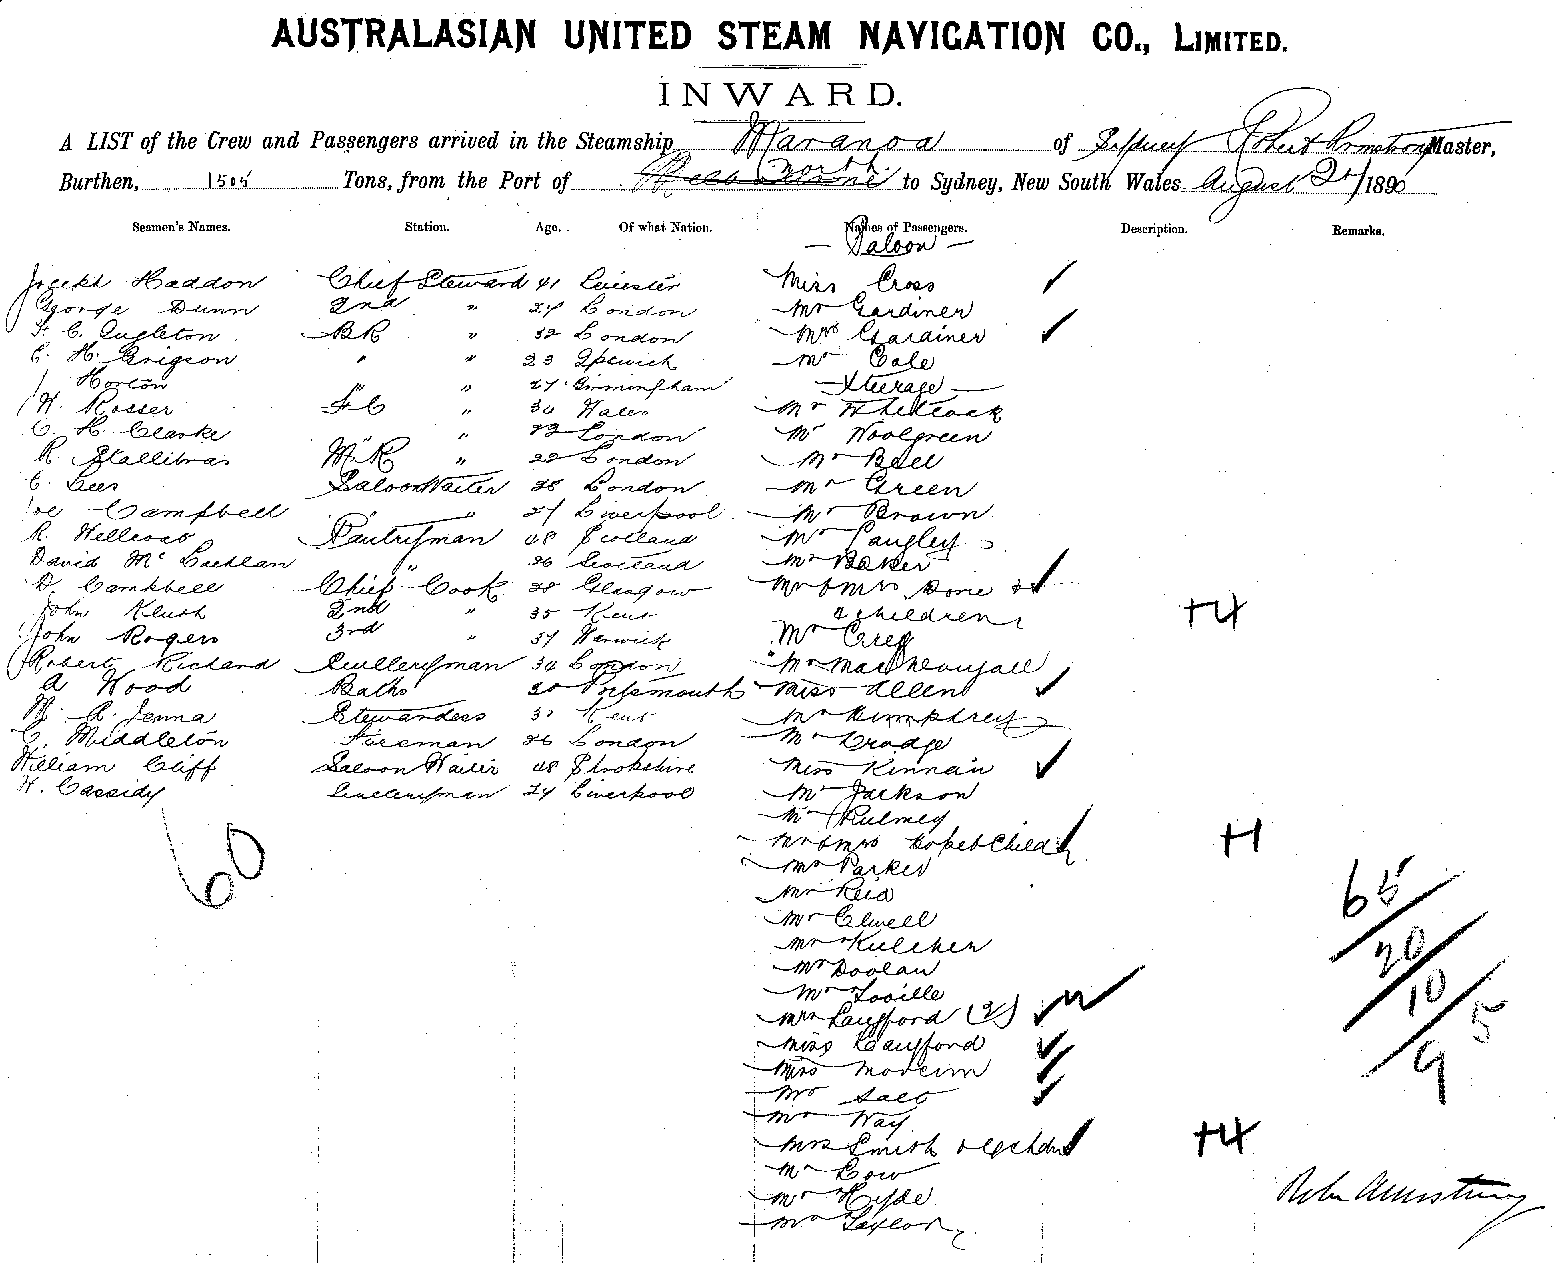 AUSTRALASIAN UNITED STEAM NAVIGATION CO., LIMITED.
INWARD.
A LIST of the Crew and Passengers arrived in the Steamship Maranoa of Sydney Robert Armstrong Master,
Burthen, 1505 Tons, from the Port of to Sydney, New South Wales August 189
Seamen's Names. Station. Age. Of what Nation. Names of Passengers. Description. Remarks.
— Saloon —
Haddon Chief Steward 41 Leicester Miss Cross
George Dunn 2nd " 24 London Mr Gardiner
BR " 32 London Mrs Gardiner
C. H. Grigson " " 23 Ipswich Mr Cole
Horton " " 27 Birmingham — Steerage —
W. Rosser FC " 30 Wales Mr
C. H. Clarke " " 23 London Mr Woolgreen
R Stallibras M.R " 22 London Mr Bell
C. Lees Saloon Waiter 28 London Mr Green
Joe Campbell " " 27 Liverpool Mr Brown
R. Pantryman 48 Scotland Mr Langley
David Mc Lachlan " 26 Scotland Mr Baker
D. Campbell Chief Cook 28 Glasgow Mr & Mrs Done &
John 2nd " 35 Kent 2 children +4
John Rogers 3rd " 37 Warwick Mr Greg
Robert Richard Sculleryman 30 London Mr
A Wood Baths 20 Portsmouth Miss Allen
A. Jenna Stewardess 37 Kent Mr Humphrey
C. Middleton Foreman 26 London Mr
William Cliff Saloon Waiter 48 Shropshire Miss Kinnair
H. Cassidy Sculleryman 24 Liverpool Mr Jackson
Mr
60
Mr & Mrs Hope & Child +1
Mr Parker
Mr Reid
Mr Elwell
65/20/10/9 5
Mr
Mr Doolan
Mr
Mrs Langford (2)
Miss Langford
Mrs
Mr
Mr Way
Mrs Smith & children +4
Mr Low
Mr Hyde
Mr Taylor
Armstrong